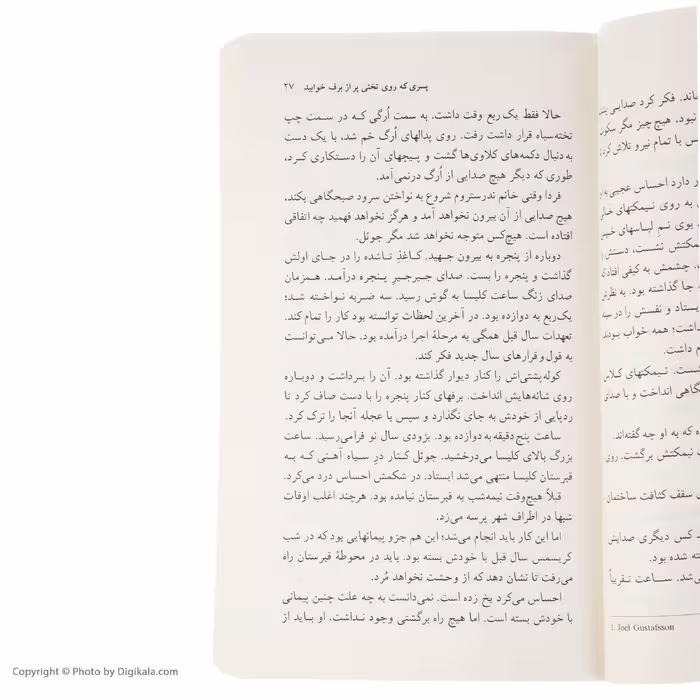 پسری که روی تختی پر از برف خوابید ۲۷
حالا فقط یک ربع وقت داشت. به سمت اُرگی که در سمت چپ
تخته‌سیاه قرار داشت رفت. روی پدالهای اُرگ خم شد، با یک دست
به دنبال دکمه‌های کلاوی‌ها گشت و پیچهای آن را دستکاری کرد،
طوری که دیگر هیچ صدایی از اُرگ درنمی‌آمد.
فردا وقتی خانم ندرستروم شروع به نواختن سرود صبحگاهی بکند،
هیچ صدایی از آن بیرون نخواهد آمد و هرگز نخواهد فهمید چه اتفاقی
افتاده است. هیچ‌کس متوجه نخواهد شد مگر جوئل.
دوباره از پنجره به بیرون جهید. کاغذِ تاشده را در جای اولش
گذاشت و پنجره را بست. صدای جیرجیرِ پنجره درآمد. همزمان
صدای زنگ ساعت کلیسا به گوش رسید. سه ضربه نواخته شد؛
یک‌ربع به دوازده بود. در آخرین لحظات توانسته بود کار را تمام کند.
تعهدات سال قبل همگی به مرحلهٔ اجرا درآمده بود. حالا می‌توانست
به قول و قرارهای سال جدید فکر کند.
کوله‌پشتی‌اش را کنار دیوار گذاشته بود. آن را برداشت و دوباره
روی شانه‌هایش انداخت. برفهای کنار پنجره را با دست صاف کرد تا
ردپایی از خودش به جای نگذارد و سپس با عجله آنجا را ترک کرد.
ساعت پنج‌دقیقه به دوازده بود. بزودی سال نو فرامی‌رسید. ساعت
بزرگ بالای کلیسا می‌درخشید. جوئل کنار درِ سیاه آهنی که به
قبرستان کلیسا منتهی می‌شد ایستاد. در شکمش احساس درد می‌کرد.
قبلاً هیچ‌وقت نیمه‌شب به قبرستان نیامده بود. هرچند اغلب اوقات
شبها در اطراف شهر پرسه می‌زد.
اما این کار باید انجام می‌شد؛ این هم جزو پیمانهایی بود که در شب
کریسمس سال قبل با خودش بسته بود. باید در محوطهٔ قبرستان راه
می‌رفت تا نشان دهد که از وحشت نخواهد مُرد.
احساس می‌کرد یخ زده است. نمی‌دانست به چه علت چنین پیمانی
با خودش بسته است. اما هیچ راه برگشتی وجود نداشت. او باید از
اند. فکر کرد صدایی
نبود، هیچ چیز مگر سکوت
س با تمام نیرو تلاش کرد
دارد احساس عجیبی به
به روی نیمکتهای خالی
بوی نم لباسهای خیس
مکتش نشست، دستش
، چشمش به کیفی افتاد که
جا گذاشته بود. به نظرش
یستاد و نفسش را در سینه
داشت؛ همه خواب بودند
م داشت.
شست. نیمکتهای کلاس
گاهی انداخت و با صدای
ه که به او چه گفته‌اند.
نیمکتش برگشت. روی
ی سقف کثافت ساختمان
د کس دیگری صدایش
ته شده بود.
ی‌شد. ساعت تقریباً
1. Joel Gustafsson
Copyright © Photo by Digikala.com